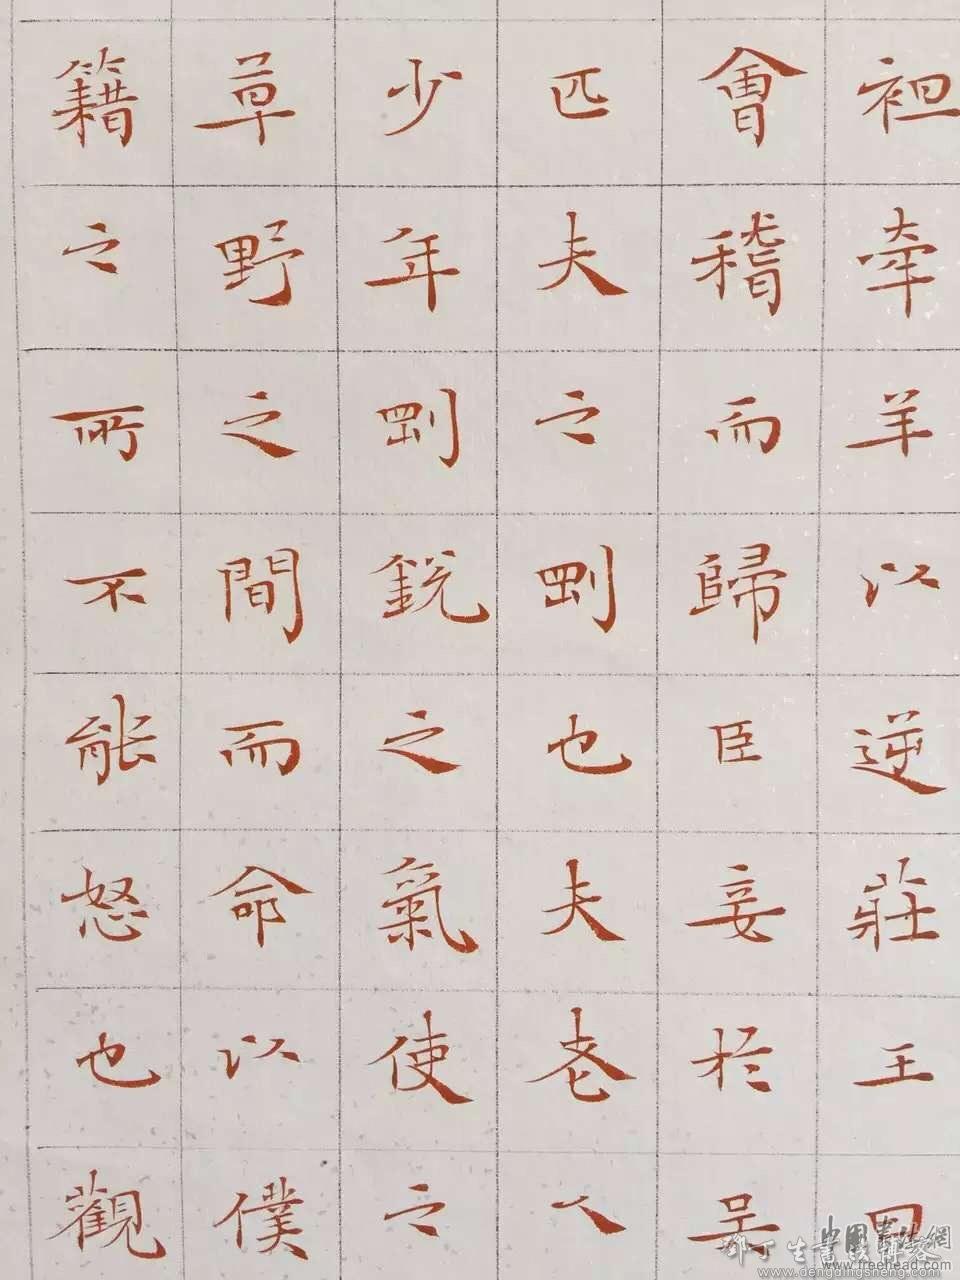 袒牽羊以逆莊王曰
會稽而歸臣妾於吳
匹夫之剛也夫老人
少年剛銳之氣使之
草野之間而命以僕
籍之所不能怒也觀
中國書法網
www.freehead.com
www.dengdingsheng.com